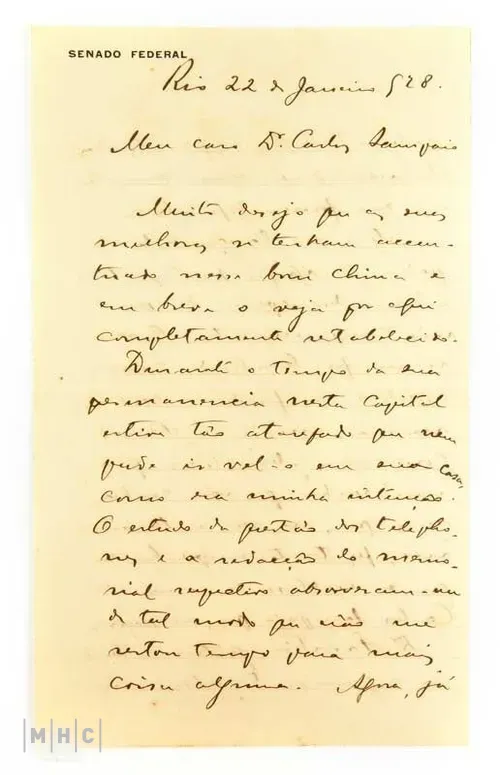 SENADO FEDERAL
Rio 22 de Janeiro 928.
Meu caro Dr. Carlos Sampaio
Muito desejo que as suas
melhoras se tenham accen-
tuado nesse bom clima e
em breve o veja por aqui
completamente restabelecido.
Durante o tempo da sua
permanencia nesta Capital
estive tão atarefado que nem
pude ir vel-o em sua casa,
como era minha intenção.
O estudo da questão dos telepho-
nes e a redacção do memo-
rial respectivo absorveram-me
de tal modo que não me
restou tempo para mais
coisa alguma. Agora, já
MHC